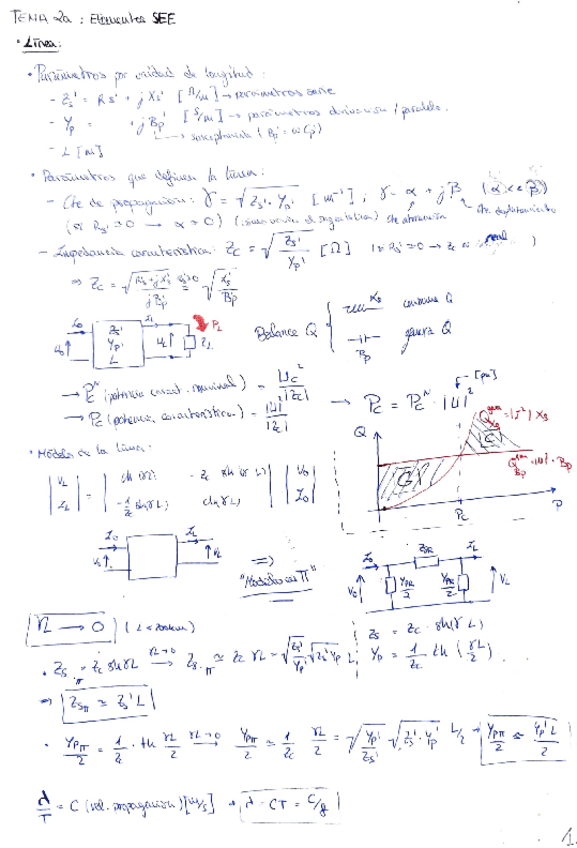 TEMA 2a : Elementos SEE
• Línea:
• Parámetros por unidad de longitud:
- Zs' = Rs' + j Xs' [Ω/m] → parámetros serie
- Yp' = + j Bp' [S/m] → parámetros derivación / paralelo
→ susceptancia (Bp' = ω Cp')
- L [m]
• Parámetros que definen la línea:
- Cte de propagación: γ = √(Zs' · Yp') [m⁻¹] ; γ = α + jβ (α << β)
(si Rs' = 0 → α = 0) Cte atenuación Cte desfasamiento
- Impedancia característica: Zc = √(Zs'/Yp') [Ω] (si Rs' = 0 → Zc es real)
⇒ Zc = √((Rs' + jXs')/(jBp')) Rs'=0 = √(Xs'/Bp')
I0 IL PL
U0 Zs' Yp' L UL ZL
Balance Q
Xs consume Q
Bp genera Q
→ Pc^N (potencia caract. nominal) = Uc²/|Zc|
→ Pc (potencia característica) = |U|²/|Zc|
→ Pc = Pc^N · |U|² → [pu]
Q
Q Xs = |I²| Xs
Q Bp = |U|² · Bp
Pc
P
• Modelo de la línea:
|VL| = | ch(γL) - Zc sh(γL) | |V0|
|IL| |-1/Zc shγL ; chγL | |I0|
I0 IL
V0 VL
⇒
"Modelo en π"
I0 IL
V0 Ypπ/2 Ypπ/2 VL
γL → 0
Zs = Zc · sh(γL)
Yp = 1/Zc th(γL/2)
• Zsπ = Zc shγL γL→0 → Zsπ ≃ Zc γL = √(Zs'/Yp') √(Zs' Yp') L
⇒ Zsπ ≃ Zs' L
• Ypπ/2 = 1/Zc · th γL/2 γL→0 → Ypπ/2 ≃ 1/Zc γL/2 = √(Yp'/Zs') √(Zs' · Yp') L/2 → Ypπ/2 ≃ Yp' L/2
λ/T = C (vel. propagación) [m/s] → λ = CT = C/f
1.